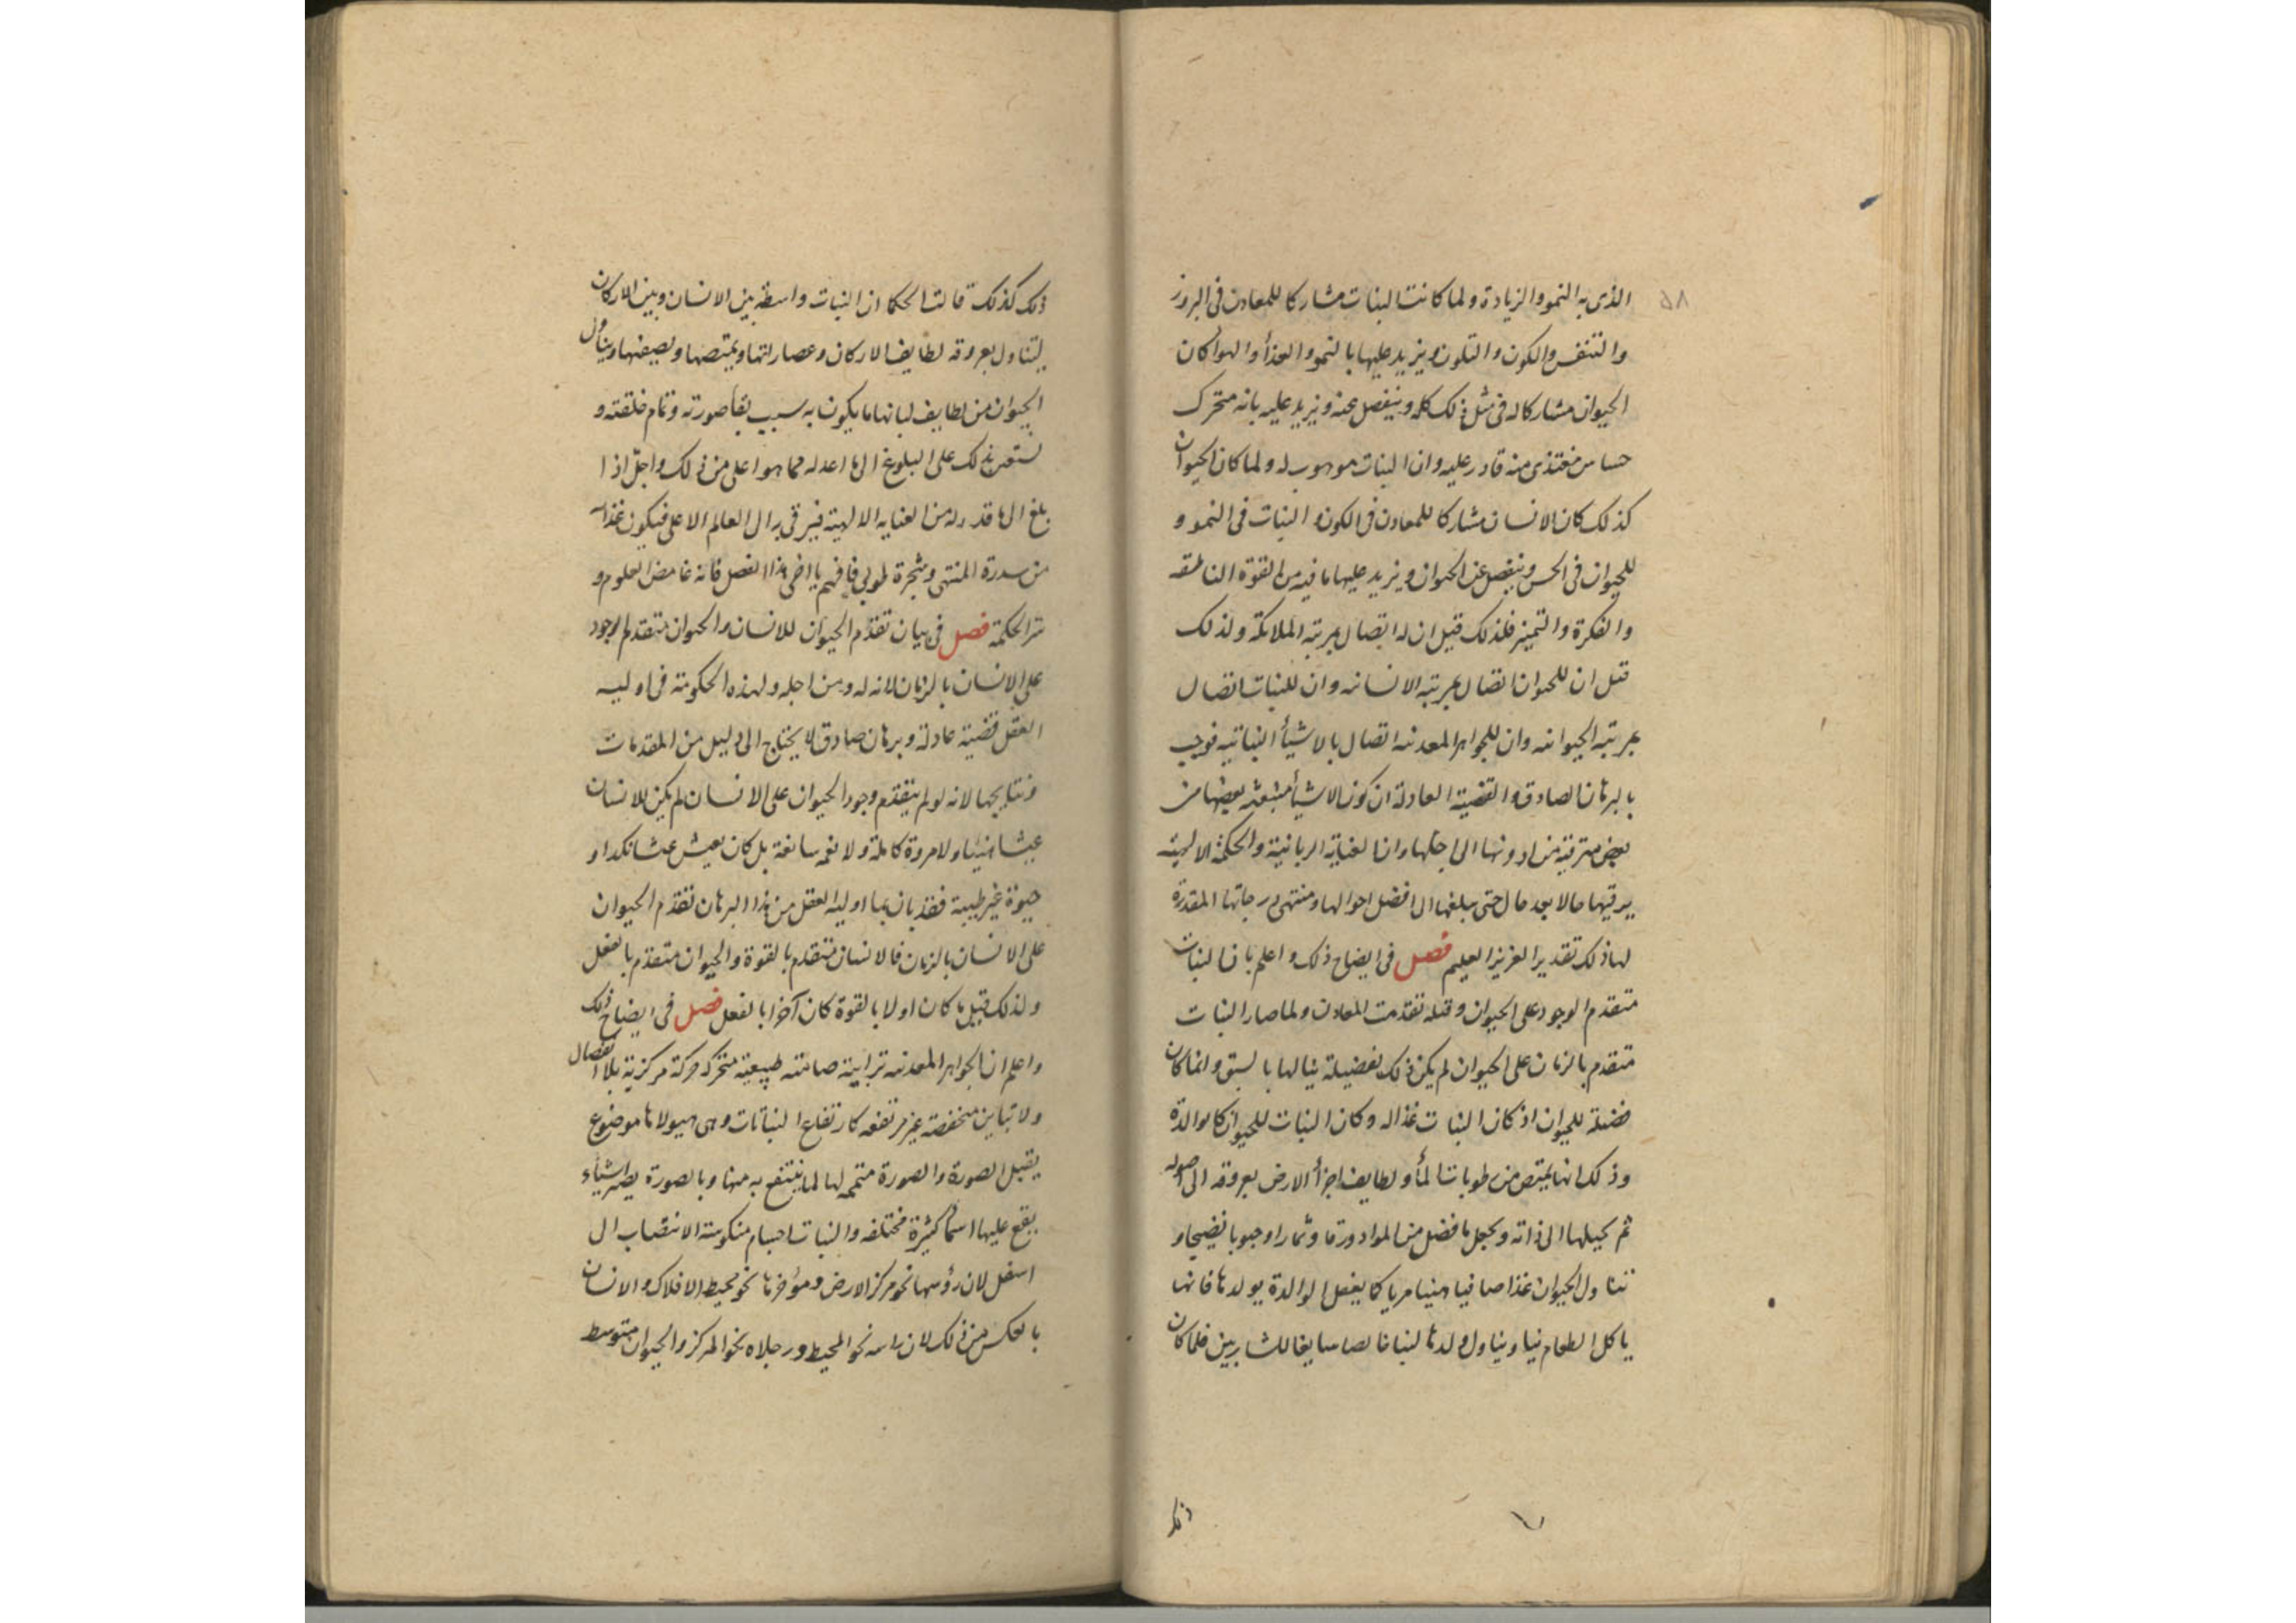 ٥٨
الذى به النمو والزيادة ولما كانت النبات مشاركا للمعادن فى البروز
والتنفس والكون والتلون ويزيد عليها بالنمو والغذأ والهوا كان
الحيوان مشاركا له فى مثل ذلك كله وينفصل عنه ويزيد عليه بانه متحرك
حساس مغتذى منه قادر عليه وان النبات موهوب له ولما كان الحيوان
كذلك كان الانسان مشاركا للمعادن فى الكون و النبات فى النمو و
للحيوان فى الحس وينفصل عن الحيوان ويزيد عليها ما فيه من القوة الناطقه
والفكرة والتميز فلذلك قيل ان له اتصال بمرتبة الملائكة ولذلك
قيل ان للحيوان اتصال بمرتبه الانسانيه وان للنبات اتصال
بمرتبه الحيوانيه وان للجواهر المعدنيه اتصال بالاشيأ النباتيه فوجب
بالبرهان الصادق والقضية العادلة ان كون الاشيأ منبعثه بعضها من
بعض مترقية من ادونها الى اجلها وان العناية الربانية والحكمة الالهية
يرقيها حالا بعد حال حتى يبلغها الى افضل احوالها ومنتهى درجاتها المقدرة
لها ذلك تقدير العزيز العليم فصل فى ايضاح ذلك و اعلم بان النبات
متقدم الوجود على الحيوان وقبله تقدمت المعادن ولما صار النبات
متقدم بالزمان على الحيوان لم يكن ذلك لفضيلة ينالها بالسبق وانما كان
فضيلة للحيوان اذ كان النبات غذا له وكان النبات للحيوان كالوالدة
وذلك انها يمتص من رطوبات المأ ولطايف اجزأ الارض بعروقه الى اصوله
ثم يحيلها الى ذاته ويجعل ما فضل من المواد ورقا وثمارا وحبوبا نضيجا و
تناول الحيوان غذا صافيا هنيا مريا كما يفعل الوالدة بولدها فانها
ياكل الطعام نيا ويناول ولدها لبنا خالصا سايغا للشاربين فلما كان
ذلك
ذلك كذلك قالت الحكما ان النبات واسطه بين الانسان وبين الاركان
ليتناول بعروقه لطايف الاركان وعصاراتها ويمتصها ويصيفها ويناول
الحيوان من لطايف لبابها ما يكون به سبب بقأ صورته وتمام خلقته و
بذلك على البلوغ الى ما اعد له مما هو اعلى من ذلك واجل اذا
بلغ الى ما قدر له من العنايه الالهية فيرقى به الى العالم الاعلى فيكون غذاه
من سدرة المنتهى وشجرة طوبى فافهم يا اخى هذا الفصل فانه غامض العلوم و
سر الحكمة فصل فى بيان تقدم الحيوان للانسان والحيوان متقدم الوجود
على الانسان بالزمان لانه له ومن اجله ولهذه الحكومة فى اوليه
العقل قضية عادلة وبرهان صادق لا يحتاج الى دليل من المقدمات
ونتايجها لانه لو لم يتقدم وجود الحيوان على الانسان لم يكن للانسان
عيشا هنيا ولا مروة كاملة ولا نعمه سابغة بل كان يعيش عيشا نكدا و
حيوة غير طيبة فقد بان بما اوليه العقل من هذا البرهان تقدم الحيوان
على الانسان بالزمان فالانسان متقدم بالقوة والحيوان متقدم بالفعل
ولذلك قيل ما كان اولا بالقوة كان آخرا بالفعل فصل فى ايضاح ذلك
واعلم ان الجواهر المعدنيه ترابية صامته طبيعية متحركة حركة مركزية بلا انفصال
ولا تباين منخفضه غير مرتفعه كارتفاع النباتات وهى هيولاها موضوع
يقبل الصورة والصورة متممه لها لما ينتفع به منها وبالصورة يصير اشياء
يقع عليها اسمأ كثيرة مختلفه والنبات اجسام منكوسة الانتصاب الى
اسفل لان رؤسها نحو مركز الارض ومؤخرها نحو محيط الافلاك والانسان
بالعكس من ذلك لان راسه نحو المحيط ورجلاه نحو المركز والحيوان متوسط